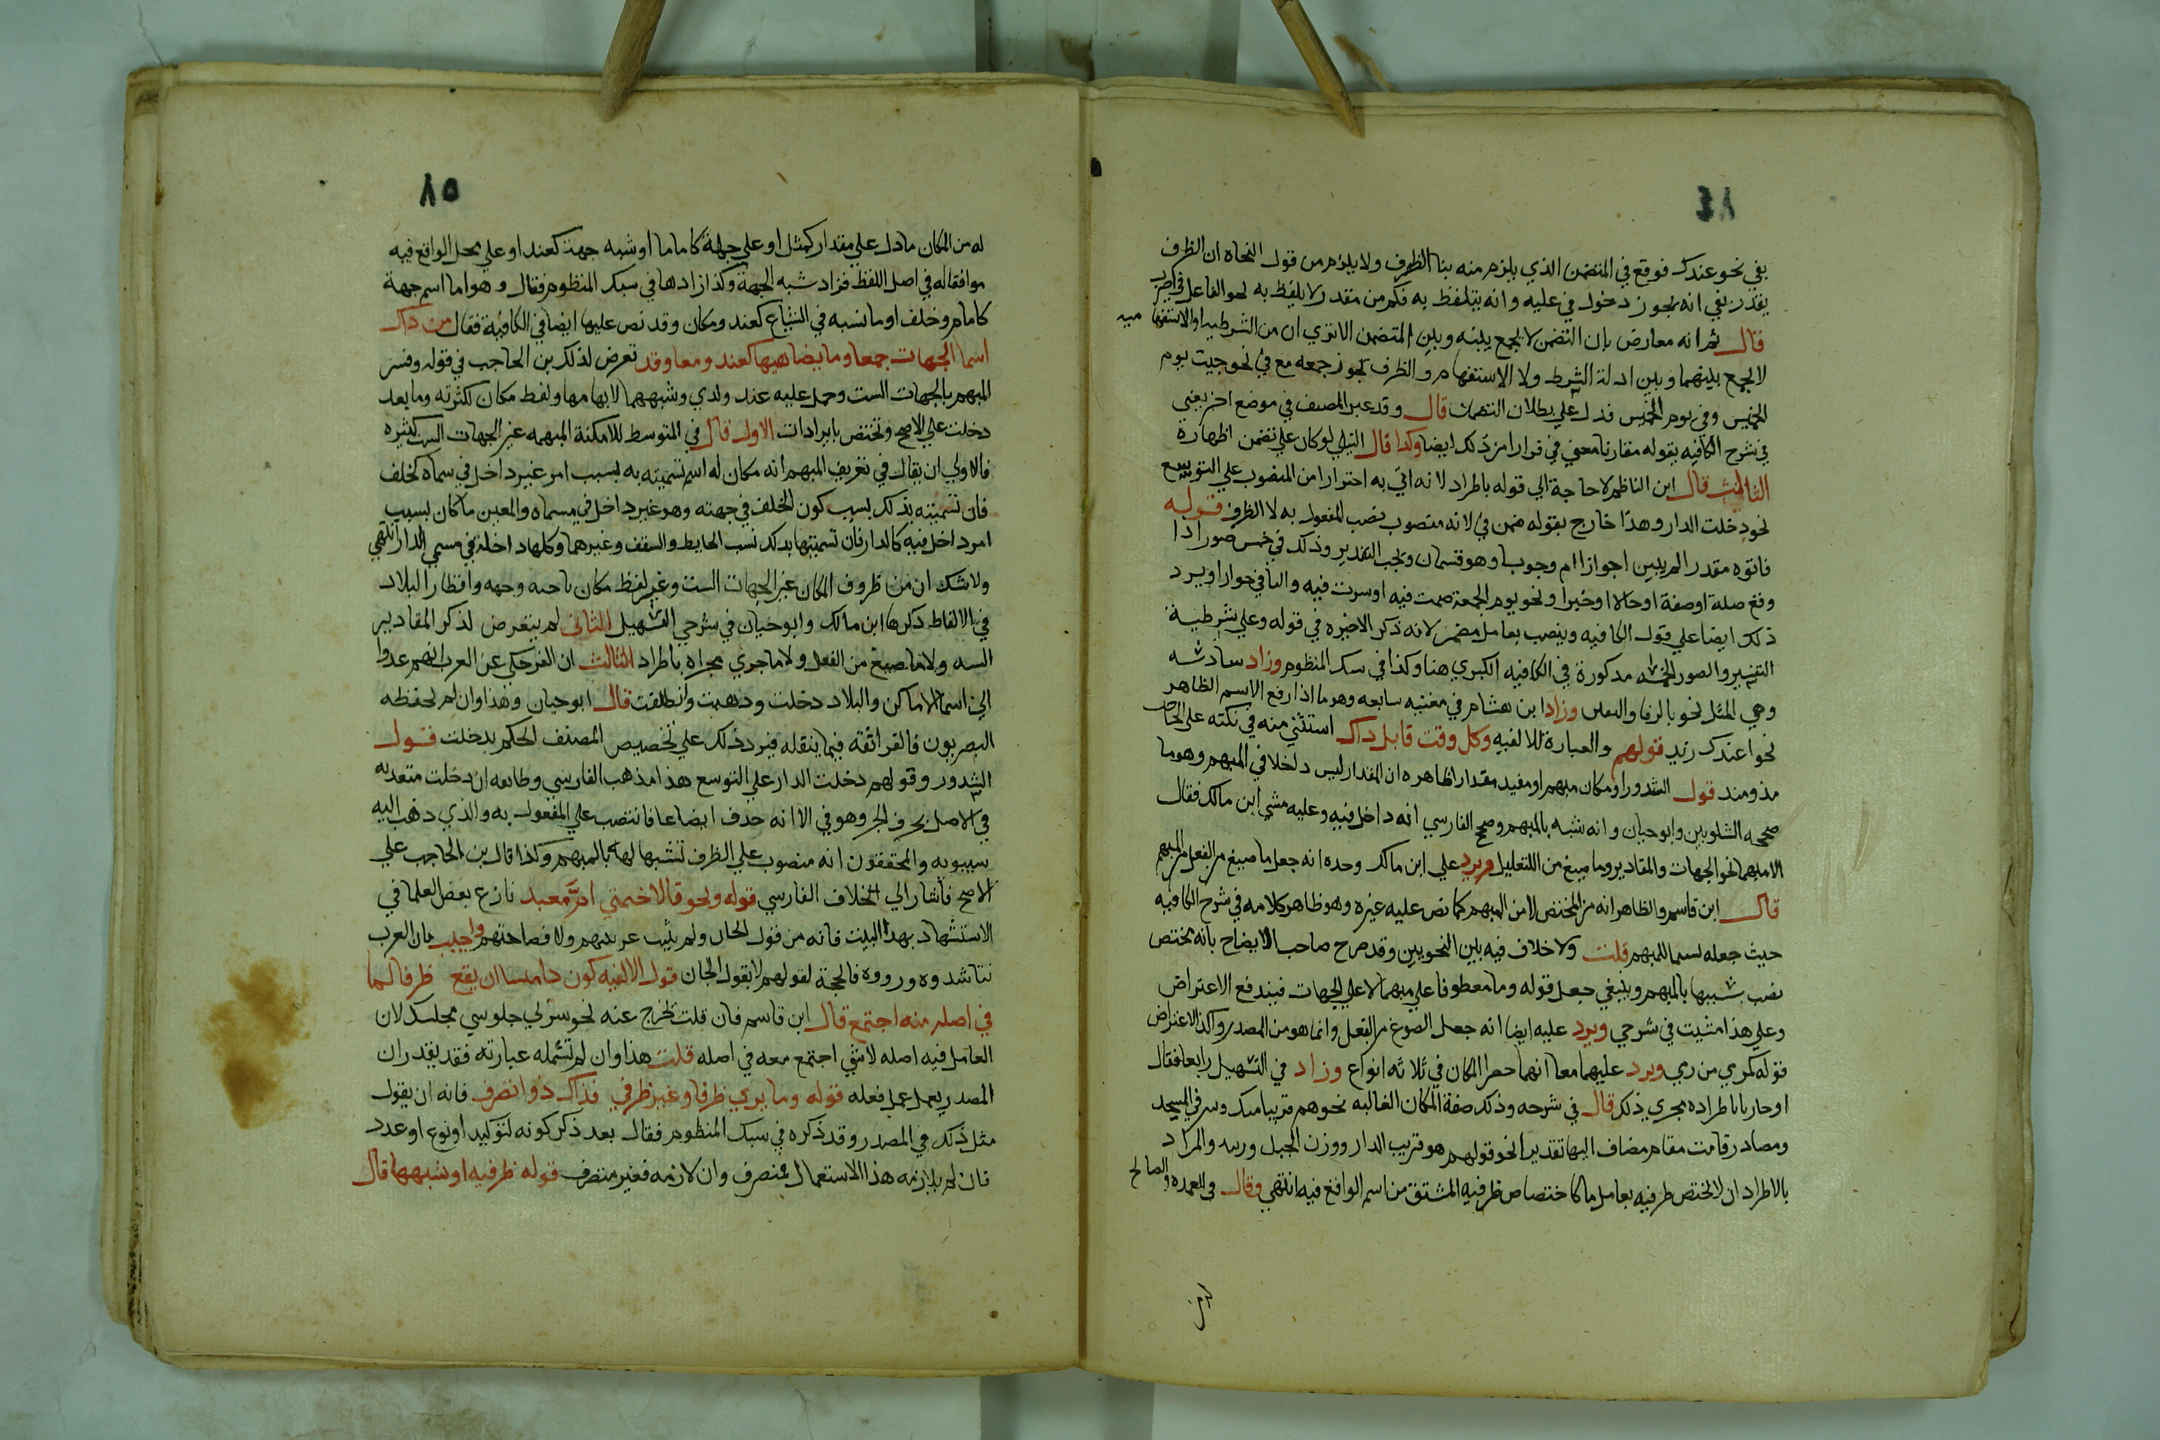 ٨٤
بفي نحو عندك فوقع في المتضمن الذي يلزم منه بنا الظرف ولا يلزم من قول النحاه ان الظرف
يقدر بفي انه يجوز دخول في عليه وانه يتلفظ به فكم من مقدر لا يلفظ به نحو الفاعل في اضرب
قال ثم انه معارض بان التضمن لا يجمع بينه وبين المتضمن الا تري ان من الشرطيه او الاستفهاميه
لا يجمع بينهما وبين اداة الشرط ولا الاستفهام والظرف يجوز جمعه مع في نحو جيت يوم
الخميس وفي يوم الخميس فدل علي بطلان التضمن قال وقد عبر المصنف في موضع اخر يعني
في شرح الكافيه بقوله مقارنا معني في فرارا من ذلك ايضا وكذا قال النيلي لو كان علي تضمن اظهاره
الثالث قال ابن الناظم لا حاجة الي قوله باطراد لانه اتي به احترازا من المنصوب علي التوسع
نحو دخلت الدار وهذا خارج بقوله ضمن في لانه منصوب نصب المفعول به لا الظرف قوله
فانوه مقدر الم يبين اجوازا ام وجوبا وهو قسمان ويجب التقدير وذلك في خمس صور اذا
وقع صلة او صفة او حالا او خبرا ونحو يوم الجمعة صمت فيه او سرت فيه والثاني جوازا ويرد
ذلك ايضا علي قول الكافيه وينصب بعامل مضمر لانه ذكر الاخيره في قوله وعلي شرطية
التفسير والصور الخمسه مذكورة في الكافيه الكبري هنا وكذا في سبك المنظوم وزاد سادسه
وهي المثل نحو بالرفا والبنين وزاد ابن هشام في مغنيه سابعه وهو ما اذا رفع الاسم الظاهر
نحو اعندك زيد قولهم والعبارة للالفيه وكل وقت قابل ذاك استثني منه في نكته علي الحاجب
مذ ومنذ قول الشذور او مكان مبهم او مفيد مقدارا ظاهره ان المقدار ليس داخلا في المبهم وهو ما
صححه الشلوبين وابو حيان وانه شبه بالمبهم وصحح الفارسي انه داخل فيه وعليه مشي ابن مالك فقال
الا مبهما نحو الجهات والمقادير وما صيغ من الفعل ويرد علي ابن مالك وحده انه جعل ما صيغ من الفعل من المبهم
قال ابن قاسم والظاهر انه من المختص لا من المبهم كما نص عليه غيره وهو ظاهر كلامه في شرح الكافيه
حيث جعله قسيما للمبهم قلت ولا خلاف فيه بين النحويين وقد صرح صاحب الايضاح بانه مختص
نصب تشبيها بالمبهم وينبغي جعل قوله وما معطوفا علي مبهما لا علي الجهات فيندفع الاعتراض
وعلي هذا مشيت في شرحي ويرد عليه ايضا انه جعل الصوغ من الفعل وانما هو من المصدر وكذا الاعتراض
قوله كمرمي من رمي ويرد عليهما معا انهما حصرا المكان في ثلاثه انواع وزاد في التسهيل رابعا فقال
او جار باطراده مجري ذلك قال في شرحه وذلك صفة المكان الغالبه نحو هم قريبا منك وشرقي المسجد
ومصادر قامت مقام مضاف اليها تقديرا نحو قولهم هو قريب الدار ووزن الجبل وزنته والمراد
بالاطراد ان لا تختص ظرفيه بعامل ما كاختصاص ظرفيه المشتق من اسم الواقع فيه انتهي وقال في العمده والصالح
٨٥
له من المكان ما دل علي مقدار كميل او علي جهة كامام او شبه جهة كعند او علي محل الواقع فيه
موافقا له في اصل اللفظ فزاد شبه الجهة وكذا زادها في سبك المنظوم فقال وهو اما اسم جهة
كامام وخلف او ما شبه في الشياع كعند ومكان وقد نص عليها ايضا في الكافية فقال من ذاك
اسما الجهات جمعا وما يضاهيها كعند ومعا وقد تعرض لذلك بن الحاجب في قوله وفسر
المبهم بالجهات الست وحمل عليه عند ولدي وشبههما لابهامها ولفظ مكان لكثرته وما بعد
دخلت علي الاصح وتختص بايرادات الاول قال في المتوسط للامكنة المبهمه غير الجهات الست كثيره
فالاولي ان يقال في تعريف المبهم انه مكان له اسم تسميته به بسبب امر غير داخل في مسماه كخلف
فان تسميته بذلك بسبب كون الخلف في جهته وهو غير داخل في مسماه والمعين ما كان بسبب
امر داخل فيه كالدار فان تسميتها بذلك بسبب الحايط والسقف وغيرهما وكلها داخلة في مسمي الدار انتهي
ولا شك ان من ظروف المكان غير الجهات الست وغير لفظ مكان ناحيه وجهه واقطار البلاد
في الالفاظ ذكرها ابن مالك وابو حيان في شرحي التسهيل الثاني لم يتعرض لذكر المقادير
البته ولا ما صيغ من الفعل ولا ما جري مجراه باطراد الثالث ان الفراء حكي عن العرب انهم عدوا
الي اسما الاماكن والبلاد دخلت وذهبت وانطلقت قال ابو حيان وهذا وان لم يحفظه
البصريون فالفرا ثقه فيما ينقله فيرد ذلك علي تخصيص المصنف الحكم بدخلت قول
الشذور وقولهم دخلت الدار علي التوسع هذا مذهب الفارسي وطايفه ان دخلت متعديه
في الاصل بحرف الجر وهو في الا انه حذف ايضاعا فانتصب علي المفعول به والذي ذهب اليه
سيبويه والمحققون انه منصوب علي الظرف تشبيها لها بالمبهم وكذا قال بن الحاجب علي
الاصح فاشار الي خلاف الفارسي قوله ونحو قالا خيمتي ام معبد نازع بعض العلما في
الاستشهاد بهذا البيت فانه من قول الجان ولم يثبت عربيتهم ولا فصاحتهم واجيب بان العرب
تناشدوه ورووه فالحجة لقولهم لا بقول الجان قول الالفيه كون ذا مقيسا ان يقع ظرفا لما
في اصله منه اجتمع قال ابن قاسم فان قلت يخرج عنه نحو سرني جلوسي مجلسك لان
العامل فيه اصله لا شي اجتمع معه في اصله قلت هذا وان لم تشمله عبارته فقد يقدر ان
المصدر يعمل عمل فعله قوله وما يري ظرفا وغير ظرفي فذاك ذو تصرف فانه ان يقول
مثل ذلك في المصدر وقد ذكره في سبك المنظوم فقال بعد ذكر كونه لتوكيد او نوع او عدد
فان لم يلازمه هذا الاستعمال فمتصرف وان لازمه فغير متصرف قوله ظرفيه او شبهها قال